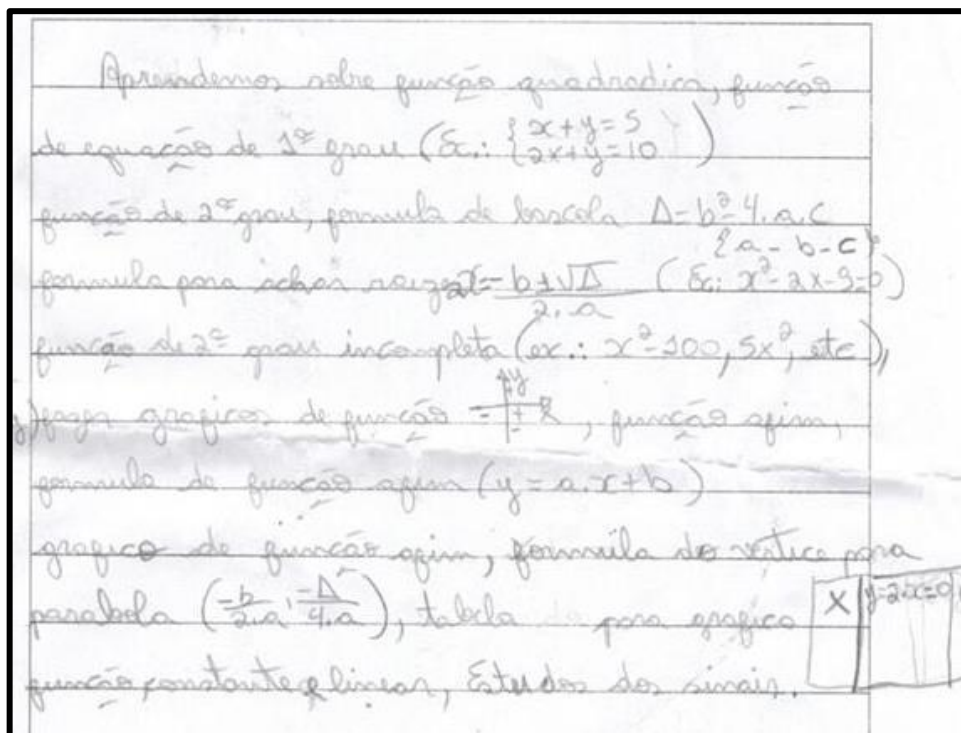 Aprendemos sobre função quadradica, função
de equação de 1º grau (Ex.: { x + y = 5
2x + y = 10 )
função de 2º grau, formula de bascola Δ = b² - 4.a.c
{a - b - c}
formula para achar raizes x = -b ± √Δ / 2.a (Ex: x² - 2x - 3 = 0)
função de 2º grau incompleta (ex.: x² - 100, 5x², etc),
fazer graficos de função - + - y x, função afim,
formula de função afim (y = a.x + b)
grafico de função afim, formula do vertice para
parabola (-b/2.a, -Δ/4.a), tabela para grafico X
função, constante e linear, Estudos dos sinais.